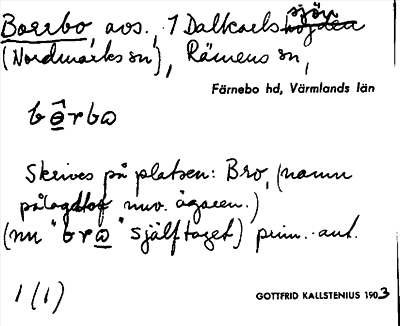 Boerbo, avs., 1 Dalkarlssjön
(Nordmarks sn), Rämens sn,
Färnebo hd, Värmlands län
Skrives på platsen: Bro, (namn
pålagdt af nuv. ägaren.)
(nu "brω" självtaget) prim. ant.
1 (1)
GOTTFRID KALLSTENIUS 1903